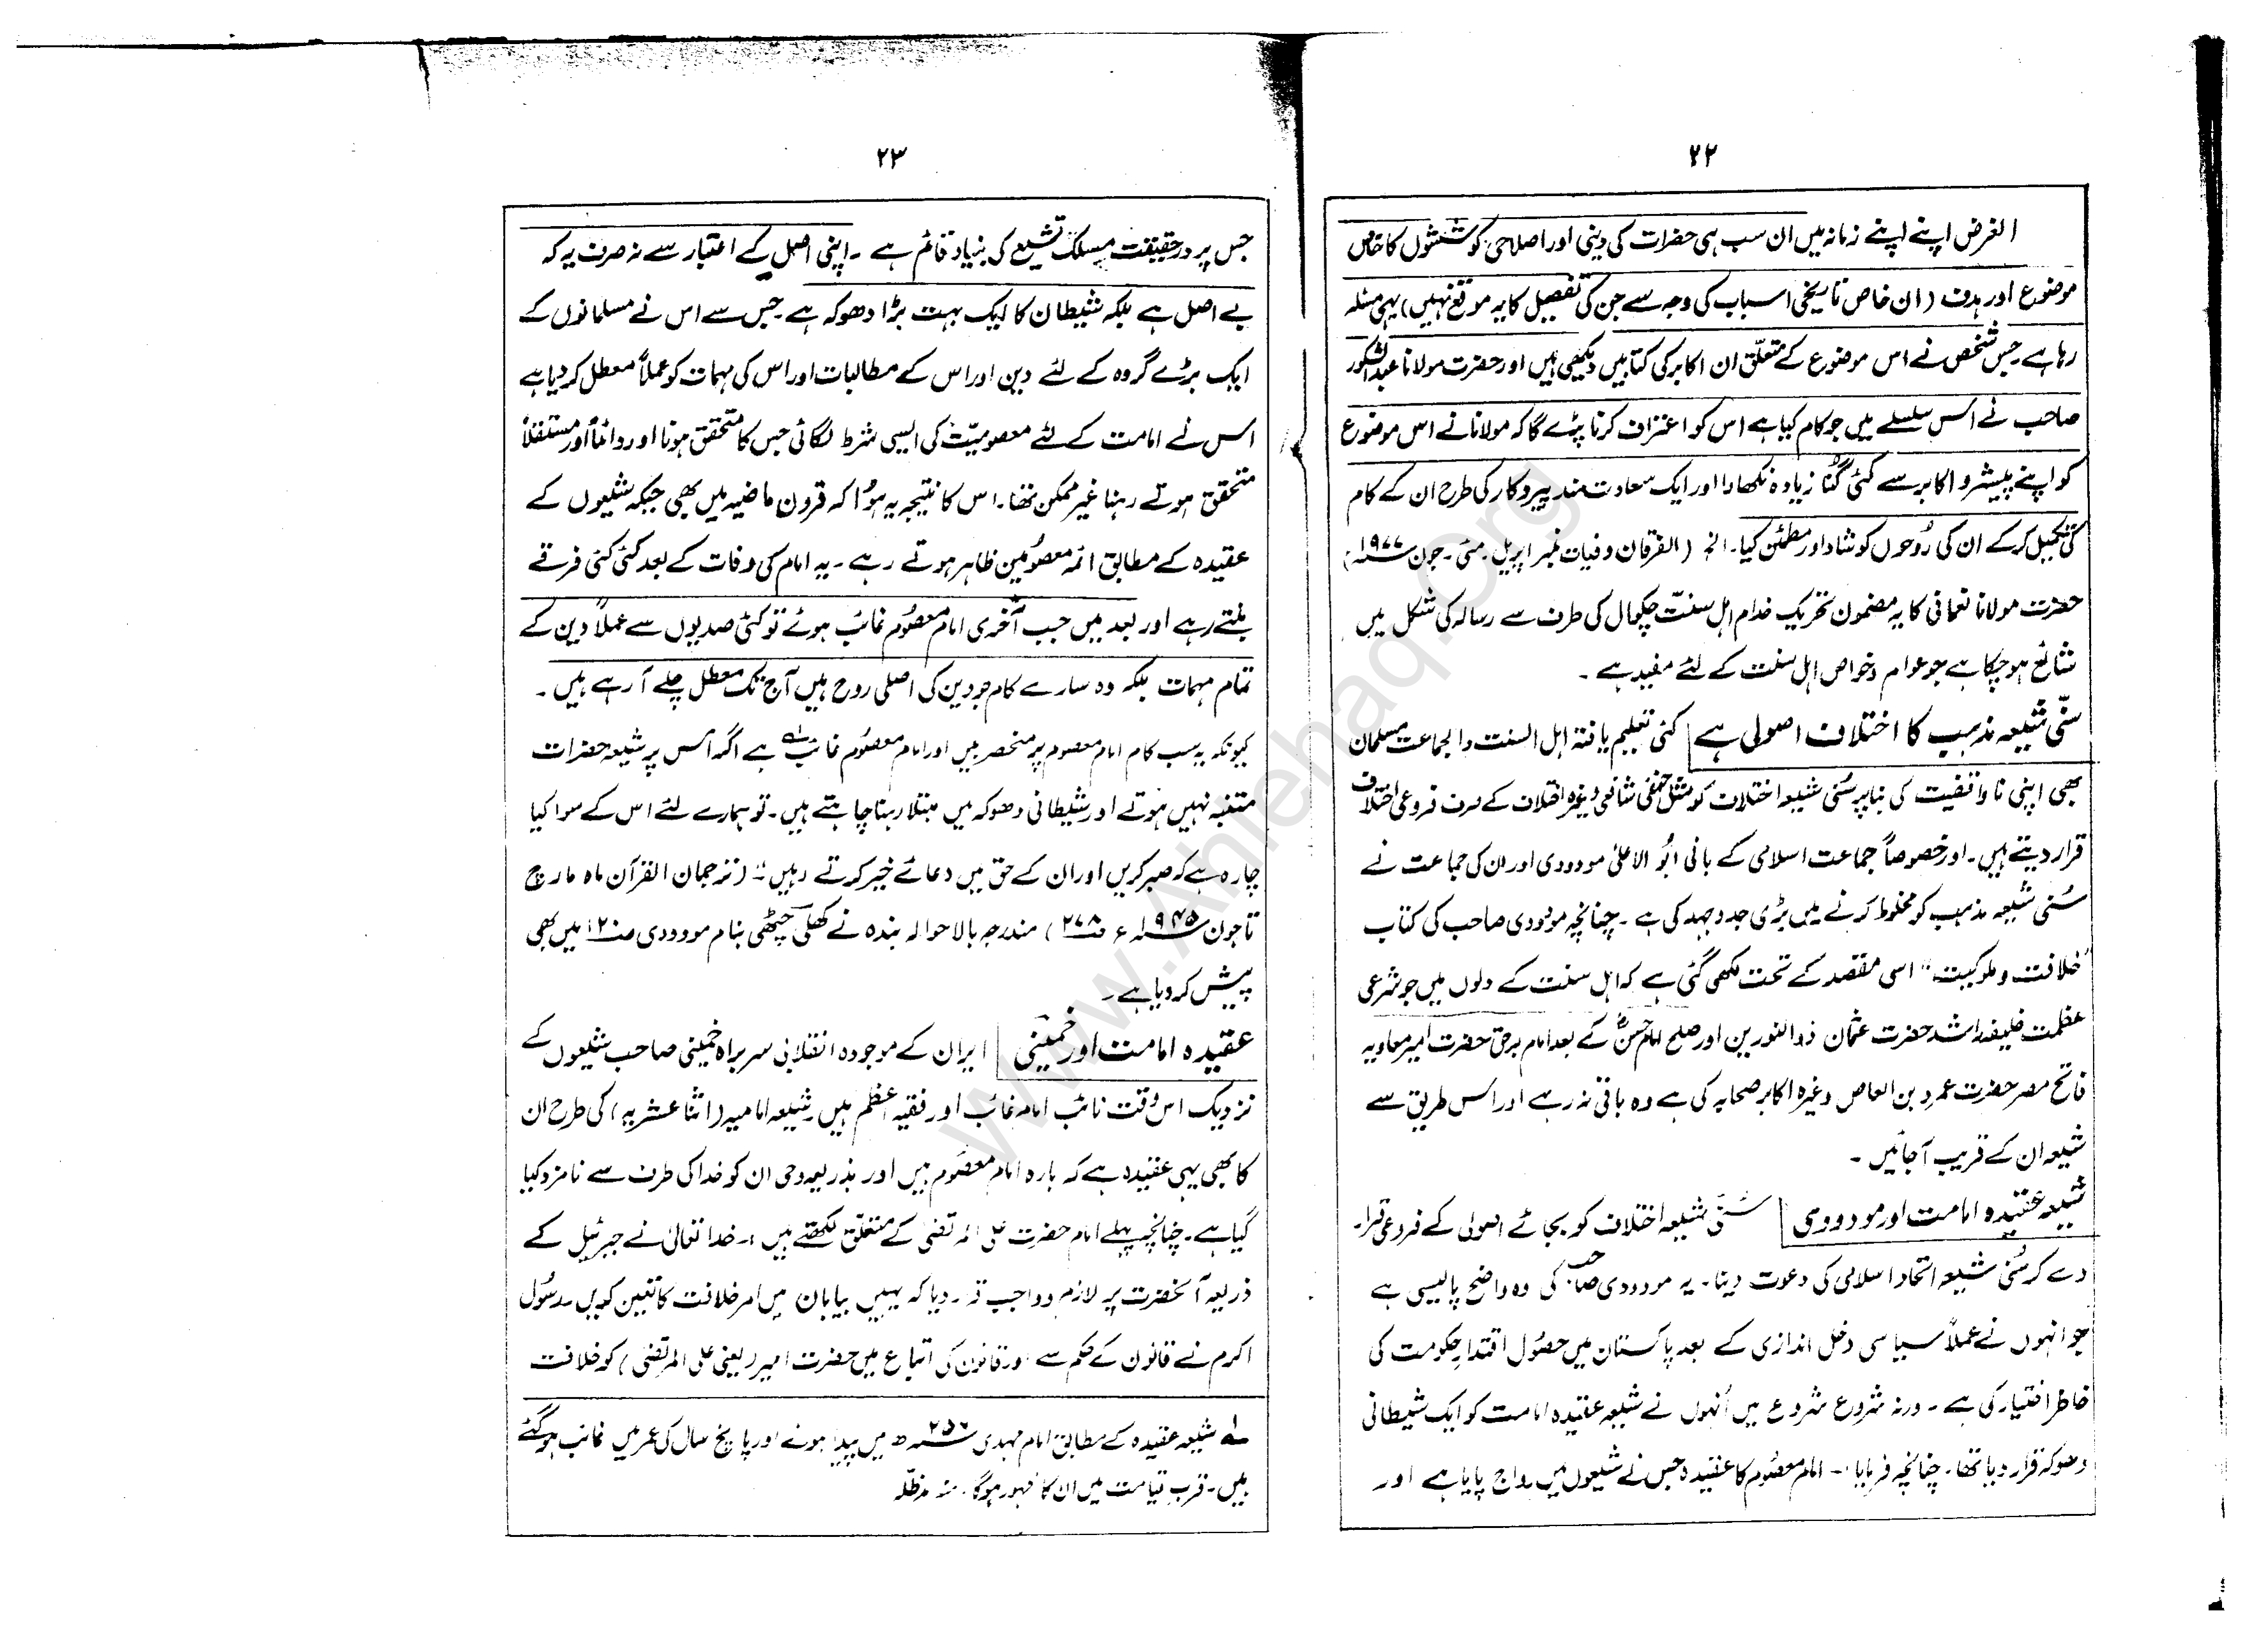 ۲۲
الغرض اپنے اپنے زمانہ میں ان سب ہی حضرات کی دینی اور اصلاحی کوششوں کا خاص
موضوع اور ہدف (ان خاص تاریخی اسباب کی وجہ سے جن کی تفصیل کا یہ موقع نہیں) یہی مسئلہ
رہا ہے جس شخص نے اس موضوع کے متعلق ان اکابر کی کتابیں دیکھی ہیں اور حضرت مولانا عبدالشکور
صاحب نے اس سلسلے میں جو کام کیا ہے اس کو اعتراف کرنا پڑے گا کہ مولانا نے اس موضوع
کو اپنے پیشرو اکابر سے کئی گنا زیادہ نکھارا اور ایک سعادت مند پیروکار کی طرح ان کے کام
کی تکمیل کرکے ان کی رُوحوں کو شاد اور مطمئن کیا۔ الخ (الفرقان وفیات نمبر اپریل۔ مئی۔ جون ۱۹۷۷ء)
حضرت مولانا نعمانی کا یہ مضمون تحریک خدام اہل سنت چکوال کی طرف سے رسالہ کی شکل میں
شائع ہو چکا ہے جو عوام و خواص اہل سنت کے لئے مفید ہے ۔
سنّی شیعہ مذہب کا اختلاف اصولی ہے کئی تعلیم یافتہ اہل السنت والجماعت مسلمان
بھی اپنی ناواقفیت کی بنا پر سُنی شیعہ اختلاف کو مثل حنفی شافعی وغیرہ اختلاف کے صرف فروعی اختلاف
قرار دیتے ہیں۔ اور خصوصاً جماعت اسلامی کے بانی ابُو الاعلیٰ مودودی اور ان کی جماعت نے
سُنی شیعہ مذہب کو مخلوط کرنے میں بڑی جدوجہد کی ہے ۔ چنانچہ مودودی صاحب کی کتاب
"خلافت و ملوکیت" اسی مقصد کے تحت لکھی گئی ہے کہ اہل سنت کے دلوں میں جو شرعی
عظمت خلیفہ راشد حضرت عثمان ذوالنورین اور صلح امام حسنؓ کے بعد امام برحق حضرت امیر معاویہ
فاتح مصر حضرت عمرو بن العاص وغیرہ اکابر صحابہ کی ہے وہ باقی نہ رہے اور اس طریق سے
شیعہ ان کے قریب آجائیں ۔
شیعہ عقیدہ امامت اور مودودی سُنّی شیعہ اختلاف کو بجائے اصولی کے فروعی قرار
دے کر سُنی شیعہ اتحاد اسلامی کی دعوت دینا۔ یہ مودودی صاحب کی وہ واضح پالیسی ہے
جو انہوں نے عملاً سیاسی دخل اندازی کے بعد پاکستان میں حصُول اقتدارِ حکومت کی
خاطر اختیار کی ہے ۔ ورنہ شروع شروع میں اُنہوں نے شیعہ عقیدہ امامت کو ایک شیطانی
دھوکہ قرار دیا تھا۔ چنانچہ فرمایا :۔ امام معصُوم کا عقیدہ جس نے شیعوں میں رواج پایا ہے اور
۲۳
جس پر درحقیقت مسلک تشیع کی بنیاد قائم ہے ۔ اپنی اصل کے اعتبار سے نہ صرف یہ کہ
بے اصل ہے بلکہ شیطان کا ایک بہت بڑا دھوکہ ہے جس سے اس نے مسلمانوں کے
ایک بڑے گروہ کے لئے دین اور اس کے مطالبات اور اس کی مہمات کو عملاً معطل کر دیا ہے
اس نے امامت کے لئے معصومیّت کی ایسی شرط لگائی جس کا متحقق ہونا اور دائماً اور مستقلاً
متحقق ہوتے رہنا غیر ممکن تھا۔ اس کا نتیجہ یہ ہوُا کہ قرون ماضیہ میں بھی جبکہ شیعوں کے
عقیدہ کے مطابق ائمہ معصُومین ظاہر ہوتے رہے ۔ یہ امام کی وفات کے بعد کئی کئی فرقے
بنتے رہے اور بعد میں جب آخری امام معصُوم غائب ہوئے تو کئی صدیوں سے عملاً دین کے
تمام مہمات بلکہ وہ سارے کام جو دین کی اصلی روح ہیں آج تک معطل چلے آ رہے ہیں ۔
کیونکہ یہ سب کام امام معصوم پر منحصر ہیں اور امام معصُوم غائب ہے اگر اس پر شیعہ حضرات
متنبہ نہیں ہوتے اور شیطانی دھوکہ میں مبتلا رہنا چاہتے ہیں۔ تو ہمارے لئے اس کے سوا کیا
چارہ ہے کہ صبر کریں اور ان کے حق میں دعائے خیر کرتے رہیں" (ترجمان القرآن ماہ مارچ
تا جون ۱۹۴۵ء ص ۲۷۸) مندرجہ بالا حوالہ بندہ نے کھلی چٹھی بنام مودودی ص ۱۲۰ میں بھی
پیش کر دیا ہے ۔
عقیدہ امامت اور خمینی ایران کے موجودہ انقلابی سربراہ خمینی صاحب شیعوں کے
نزدیک اس وقت نائب امام غائب اور فقیہ اعظم ہیں شیعہ امامیہ (اثنا عشریہ) کی طرح ان
کا بھی یہی عقیدہ ہے کہ بارہ امام معصُوم ہیں اور بذریعہ وحی ان کو خدا کی طرف سے نامزد کیا
گیا ہے۔ چنانچہ پہلے امام حضرت علی المرتضیٰ کے متعلق لکھتے ہیں :۔ خدا تعالیٰ نے جبرئیل کے
ذریعہ آنحضرت پر لازم و واجب کر دیا کہ یہیں بیابان میں امر خلافت کا تعین کریں۔ رسُول
اکرم نے قانون کے حکم سے اور قانون کی اتباع میں حضرت امیر (یعنی علی المرتضیٰ) کو خلافت
لہ شیعہ عقیدہ کے مطابق امام مہدی ۲۵۶ھ میں پیدا ہوئے اور پانچ سال کی عمر میں غائب ہو گئے
ہیں۔ قرب قیامت میں ان کا ظہور ہوگا۔ منہ مدظلّہ
www.Ahlehaq.Org